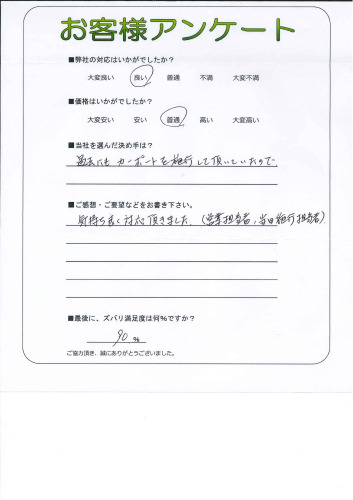 お客様アンケート
■弊社の対応はいかがでしたか?
大変良い 良い 普通 不満 大変不満
■価格はいかがでしたか?
大変安い 安い 普通 高い 大変高い
■当社を選んだ決め手は?
過去にも カーポートを施行して頂いていたので
■ご感想・ご要望などをお書き下さい。
気持ち良く対応頂きました。(営業担当者、当日施行担当者)
■最後に、ズバリ満足度は何%ですか?
90 %
ご協力頂き、誠にありがとうございました。